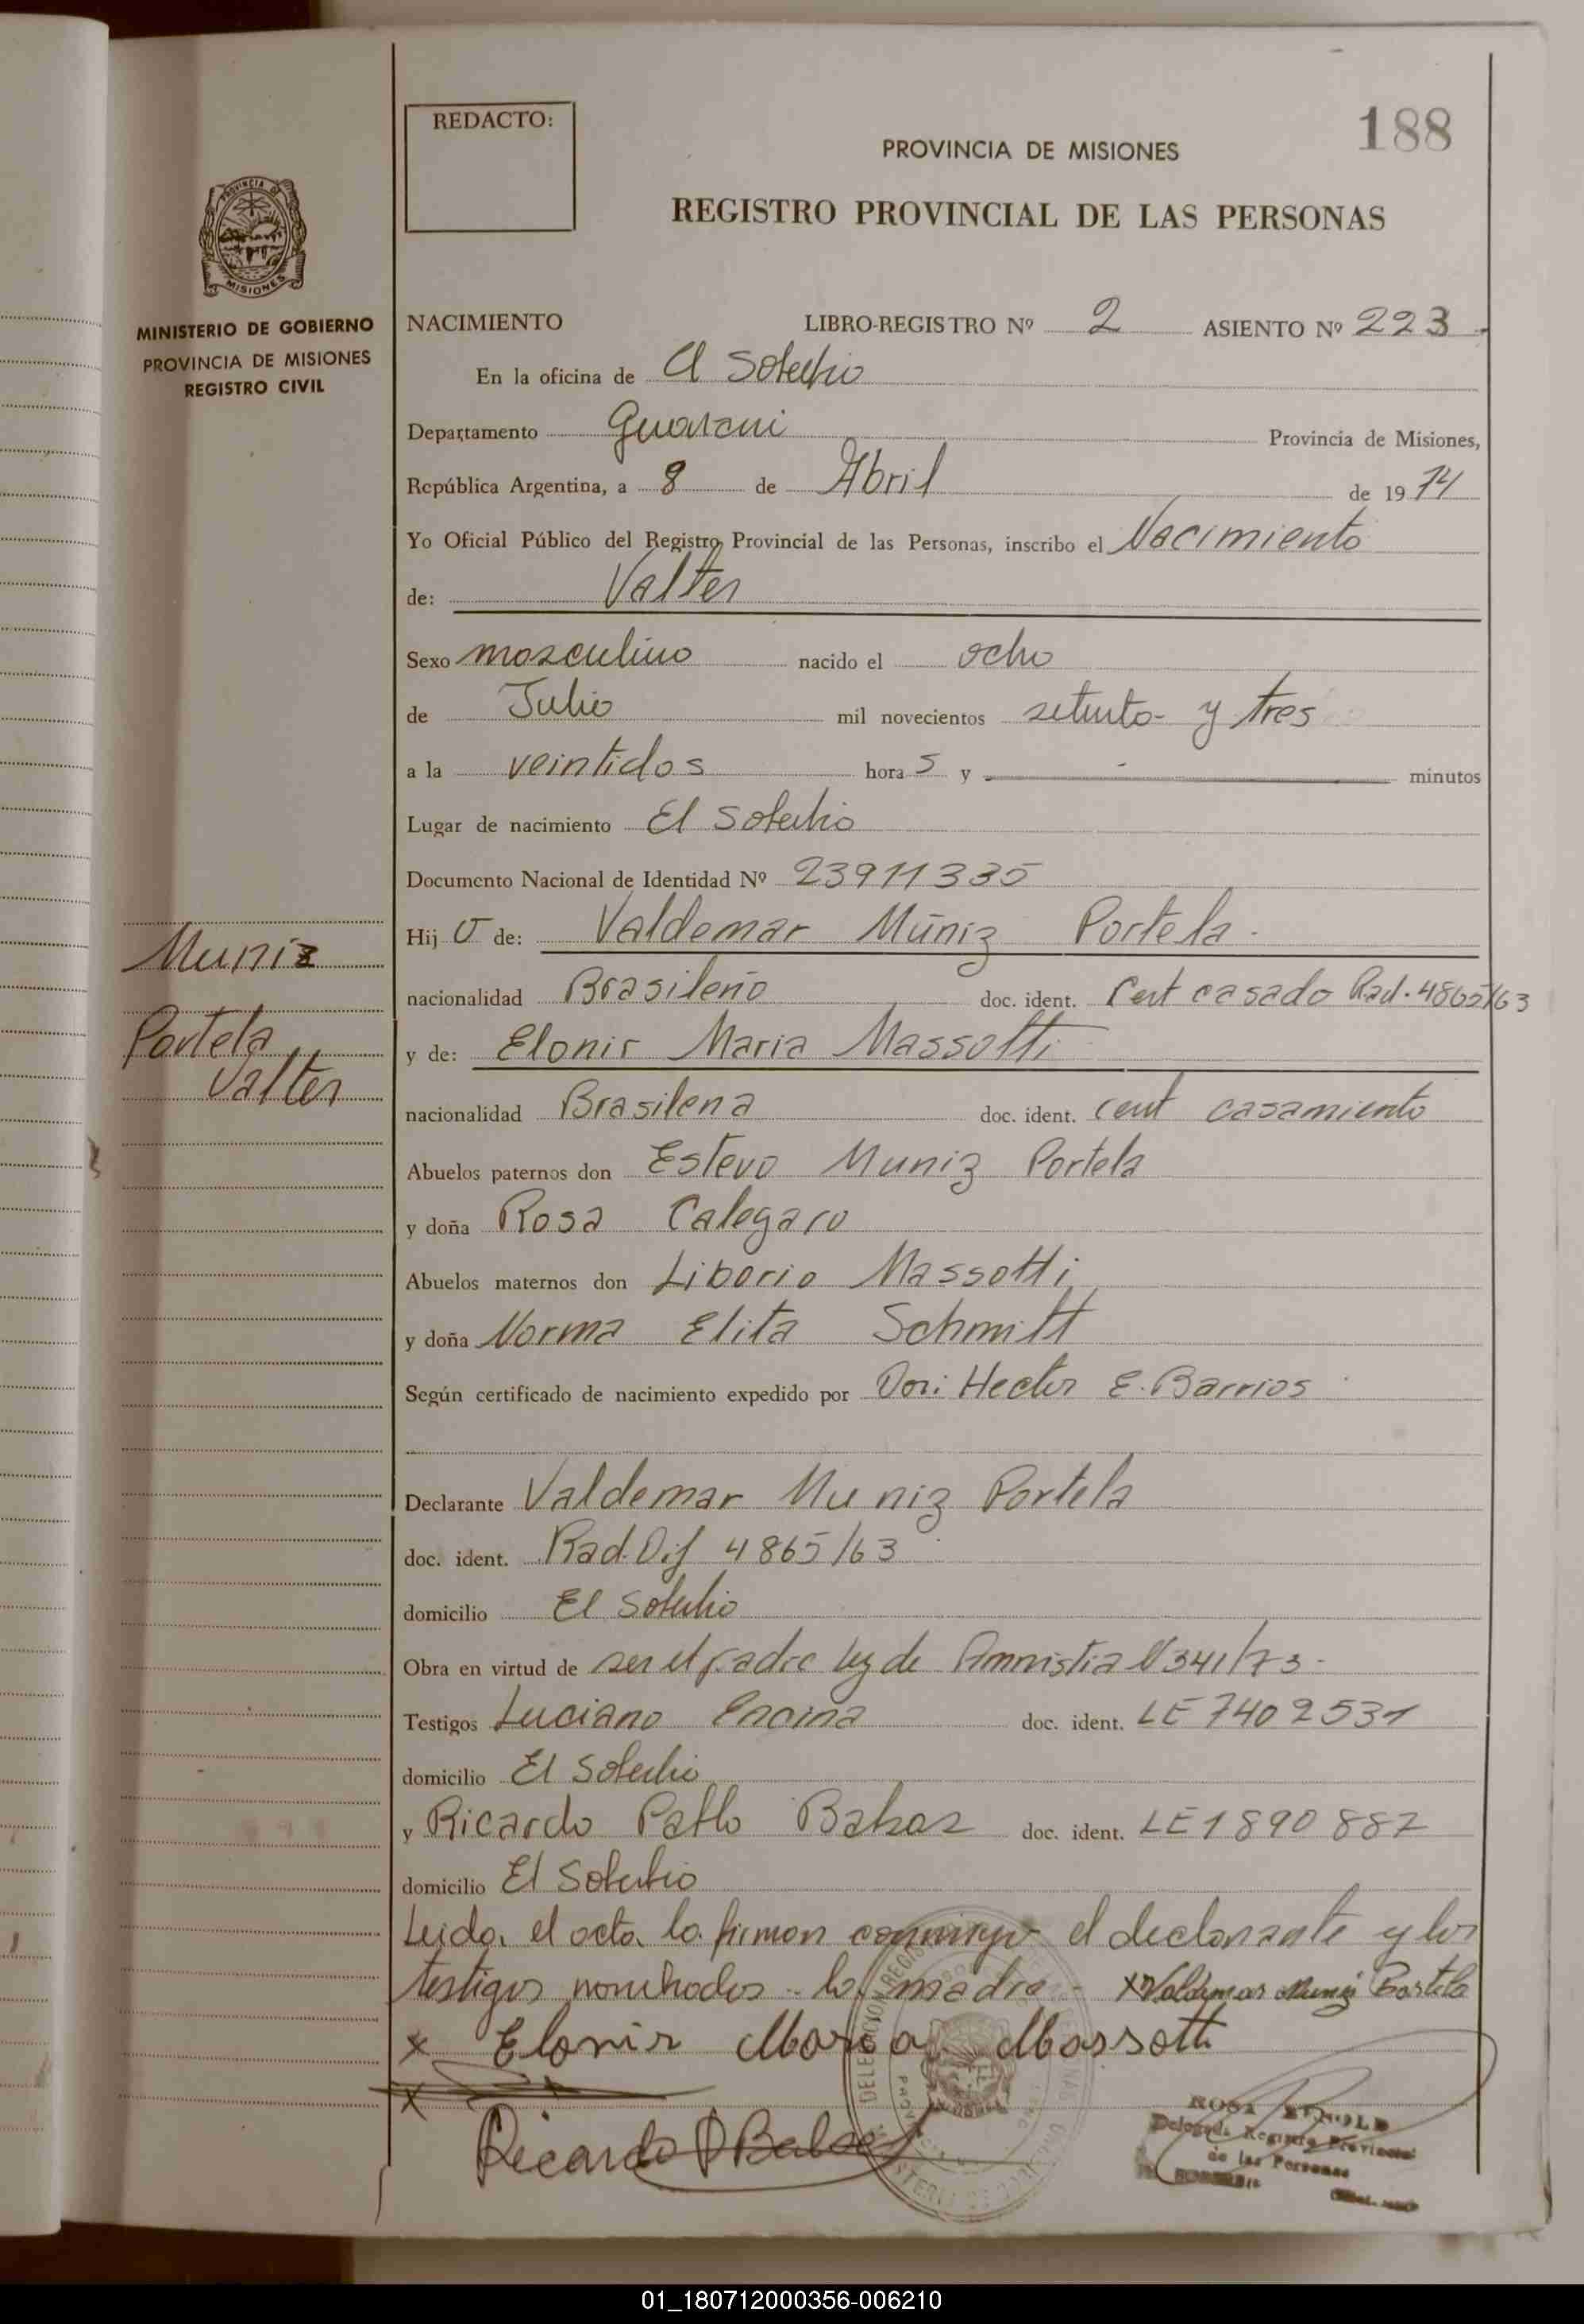 188
REDACTO:
PROVINCIA DE MISIONES
REGISTRO PROVINCIAL DE LAS PERSONAS
PROVINCIA DE
MISIONES
MINISTERIO DE GOBIERNO
PROVINCIA DE MISIONES
REGISTRO CIVIL
NACIMIENTO LIBRO-REGISTRO Nº 2 ASIENTO Nº 223
En la oficina de El Soberbio
Departamento Guarani Provincia de Misiones,
República Argentina, a 8 de Abril de 1974
Yo Oficial Público del Registro Provincial de las Personas, inscribo el Nacimiento
de: Valter
Sexo masculino nacido el ocho
de Julio mil novecientos setenta y tres
a la veintidos hora s y - minutos
Lugar de nacimiento El Soberbio
Documento Nacional de Identidad Nº 23911335
Hij o de: Valdemar Muniz Portela
nacionalidad Brasileño doc. ident. Cert casado Rad. 4865/63
y de: Elonir Maria Massotti
nacionalidad Brasilena doc. ident. cert casamiento
Abuelos paternos don Estevo Muniz Portela
y doña Rosa Calegaro
Abuelos maternos don Liborio Massotti
y doña Norma Elita Schmitt
Según certificado de nacimiento expedido por Hector E. Barrios
Declarante Valdemar Muniz Portela
doc. ident. Rad. Dif 4865/63
domicilio El Soberbio
Obra en virtud de ser el padre ley de Amnistia N 341/73-
Testigos Luciano Encina doc. ident. LE 7402531
domicilio El Soberbio
y Ricardo Pablo doc. ident. LE 1890887
domicilio El Soberbio
Leida el acta la firman conmigo el declarante y los
testigos nombrados - la madre - x Valdemar Muniz Portela
x Elonir Maria Massotti
x
Ricardo P
Muniz
Portela
Valter
ROSA
Delegada Registro Provincial
de las Personas
01_180712000356-006210